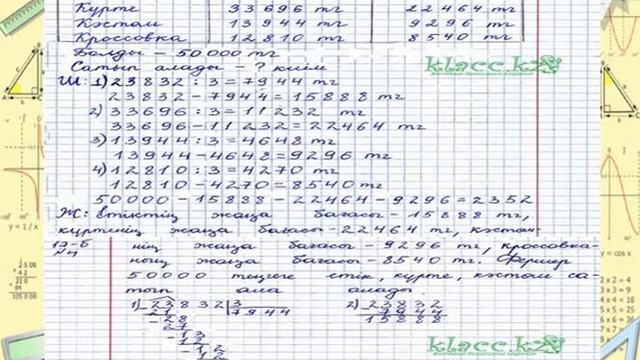 Күрте 33696 тг 22464 тг
Кәстөм 13944 тг 9296 тг
Кроссовка 12810 тг 8540 тг
Болды – 50 000 тг
Сатып алады – ? киім
klacc.kz
Ш: 1) 23832 : 3 = 7944 тг
23832 – 7944 = 15888 тг
2) 33696 : 3 = 11232 тг
33696 – 11232 = 22464 тг
3) 13944 : 3 = 4648 тг
13944 – 4648 = 9296 тг
4) 12810 : 3 = 4270 тг
12810 – 4270 = 8540 тг
50000 – 15888 – 22464 – 9296 = 2352
Ж: Етіктің жаңа бағасы – 15888 тг,
күртенің жаңа бағасы – 22464 тг, кәстөм
13-Б нің жаңа бағасы – 9296 тг, кроссовка-
№4 ның жаңа бағасы – 8540 тг. Фермер
50000 теңгеге етік, күрте, кәстөм са-
тып ала алады.
1) 23832 | 3 2) 23832
21 7944 7944
28 15888
27
13
12
12
12
klacc.kz
y = 1/x